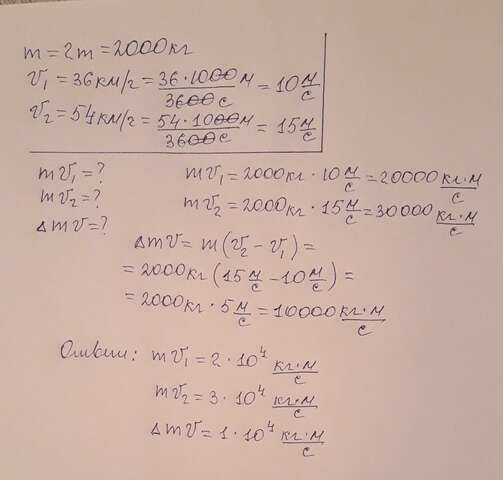 m = 2т = 2000кг
v₁ = 36км/г = 36·1000м/3600с = 10 м/с
v₂ = 54км/г = 54·1000м/3600с = 15 м/с
mv₁ = ? mv₁ = 2000кг · 10 м/с = 20000 кг·м/с
mv₂ = ? mv₂ = 2000кг · 15 м/с = 30000 кг·м/с
Δmv = ?
Δmv = m(v₂ - v₁) =
= 2000кг (15 м/с - 10 м/с) =
= 2000кг · 5 м/с = 10000 кг·м/с
Ответ: mv₁ = 2 · 10⁴ кг·м/с
mv₂ = 3 · 10⁴ кг·м/с
Δmv = 1 · 10⁴ кг·м/с